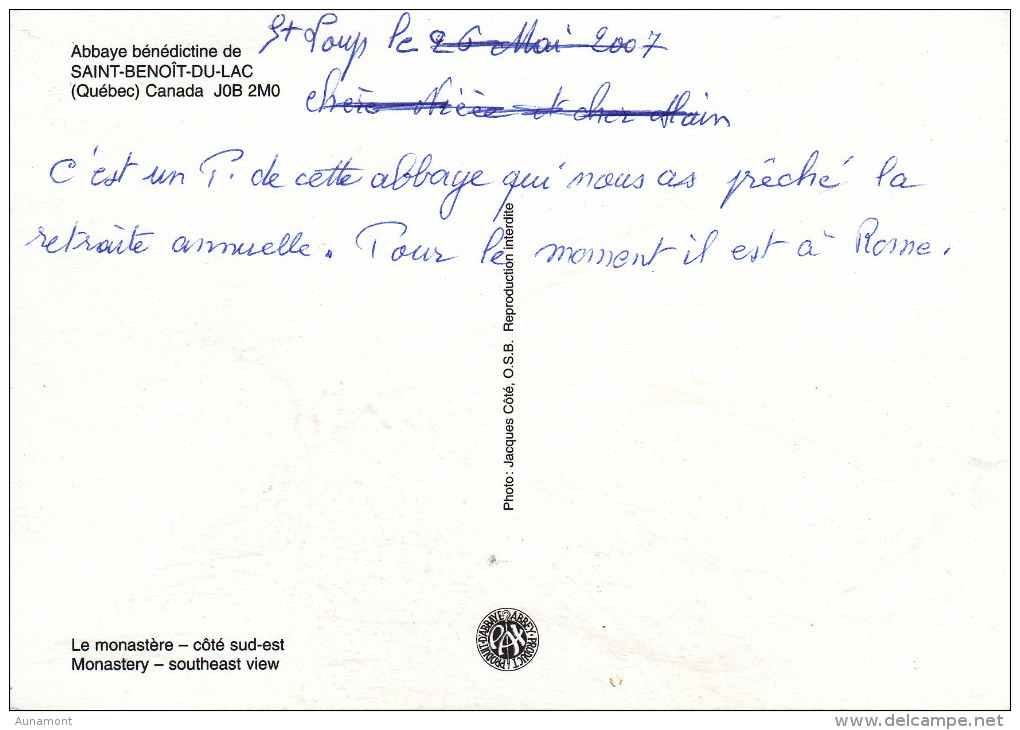 Abbaye bénédictine de
SAINT-BENOÎT-DU-LAC
(Québec) Canada J0B 2M0
St Loup le 26 Mai 2007
chère Nièce et cher Alain
C'est un P. de cette abbaye qui nous as prêché la
retraite annuelle. Pour le moment il est à Rome.
Photo: Jacques Côté, O.S.B. Reproduction interdite
PRODUIT D'ABBAYE ABBEY PRODUCT
PAX
Le monastère – côté sud-est
Monastery – southeast view
Aunamont
www.delcampe.net